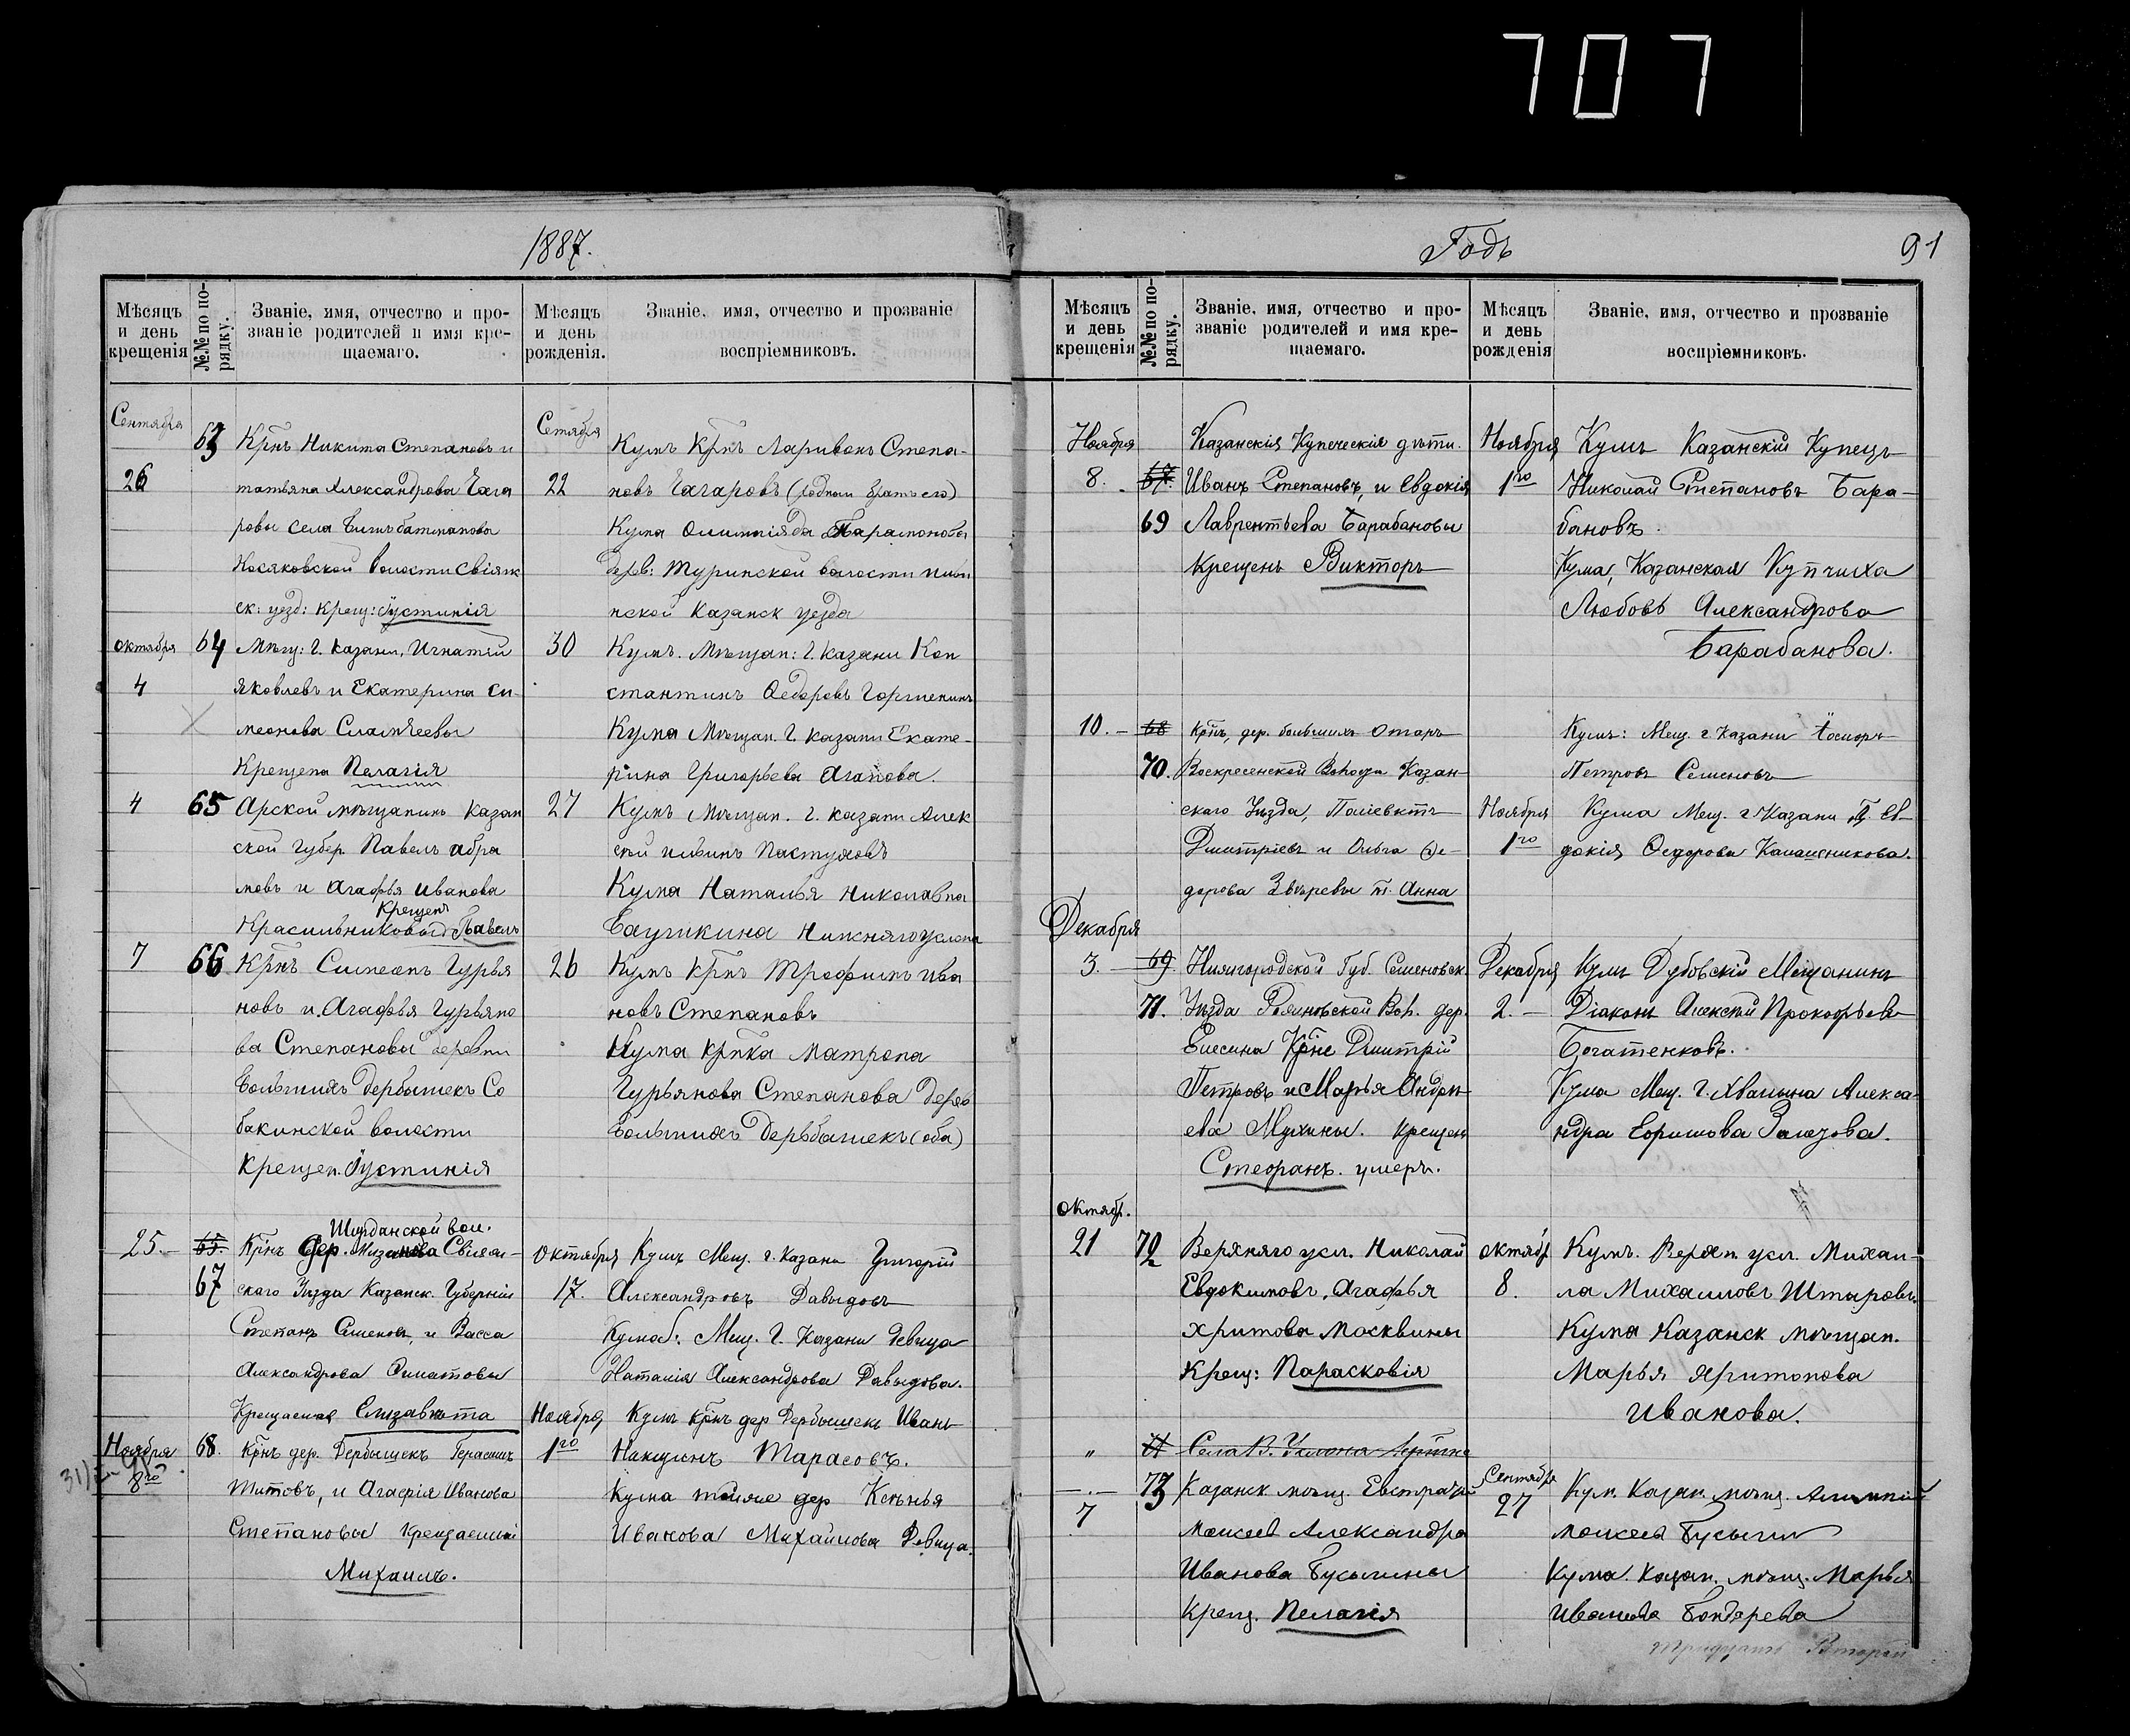 707
1887.
Мѣсяцъ и день крещенія
№№ по порядку.
Званіе, имя, отчество и прозваніе родителей и имя крещаемаго.
Мѣсяцъ и день рожденія.
Званіе, имя, отчество и прозваніе воспріемниковъ.
Сентября
26
63
Крнъ Никита Степановъ и
татьяна Александрова
ровы села
волости Свіяж
ск: уезд: крещ: Іустинія
Сетября
22
Кумъ Крнъ Ларивонъ Степа-
новъ (родной братъ его)
Кума Олимпіяда Парамонова
дерв: Туринской волости
нской Казанск уезда
октября
4
64
Мѣщ: г. Казани, Игнатій
яковлевъ и Екатерина си
меонова
Крещена Пелагія
30
Кумъ. Мѣщан: г. Казани Кон
стантинъ Ѳедоровъ
Кума Мѣщан. г. Казани Екате-
рина Григорьева Агапова.
4
65
Арской мѣщанинъ Казан
ской губер. Павелъ абра
мовъ и Агафья иванова
Крещенъ
Красильниковы Павелъ
27
Кумъ Мѣщан. г. Казани Алек
сѣй Пастуховъ
Кума Наталья Николавна
Баушкина Нижняго услона
7
66
Крнъ Симеонъ Гурья
новъ и Агафья Гурьяно
ва Степановы деревни
Большихъ Дербышекъ Со
бакинской волости
Крещен. Іустинія
26
Кумъ Крнъ Трофимъ ива
новъ Степановъ
Кума Крнка Матрона
Гурьянова Степанова дерев
Большихъ Дербышекъ (оба)
25.
65.
67
Ширданской вол.
Крнъ дер. Мизинова Свіяж-
скаго Уѣзда Казанск. Губерніи
Степанъ Семеновъ, и Васса
Александрова
Крещаемая Елизавѣта
Октября
17.
Кумъ Мещ. г. Казани Григорій
Александровъ Давыдовъ
Кума: Мещ. г. Казани Девица
Наталія Александрова Давыдова.
Ноября
8го
68.
Крнъ дер. Дербышекъ Герасимъ
Титовъ, и Агафія Иванова
Степановы крещаемый
Михаилъ.
Ноября
1го
Кумъ крнъ дер Дербышекъ Иванъ
Тарасовъ.
Кума тоже дер Ксенья
Иванова Михайлова Девица.
Годъ
91
Мѣсяцъ и день крещенія
№№ по порядку.
Званіе, имя, отчество и прозваніе родителей и имя крещаемаго.
Мѣсяцъ и день рожденія
Званіе, имя, отчество и прозваніе воспріемниковъ.
Ноября
8.
67.
69
Казанскія Купеческія дѣти.
Иванъ Степановъ, и Евдокія
Лаврентьева Барабановы
Крещенъ Викторъ
Ноября
1го
Кумъ Казанскій Купецъ
Николай Степановъ Бара-
бановъ.
Кума, Казанская Купчиха
Любовь Александрова
Барабанова.
10.
68
70.
Крнъ, дер. большихъ Отаръ
Воскресенской Волости Казан-
скаго Уѣзда, Поліевктъ
Дмитріевъ и Ольга Фе-
дорова Звѣревы т. Анна
Ноября
1го
Кумъ: Мещ. г Казани
Петровъ Семеновъ
Кума Мещ. г Казани Ев-
докія Ѳедорова Калашникова.
Декабря
3.
69
71.
Нижгородской Губ. Семеновск.
Уѣзда Вол. дер.
Елесина Крне Дмитрій
Петровъ и Марья Андре-
ева Мухины. Крещен
Стефанъ. умеръ.
Декабря
2.
Кумъ Дубовскій Мещанинъ
Діаконъ Алексѣй Прокофьевъ
Богатенковъ.
Кума Мещ. г. Хвалына Алекса-
ндра Ефимова
Октябр.
21
72
Верхняго усл. Николай
Евдокимовъ. Агафья
Москвины
Крещ: Парасковія
октябр
8.
Кумъ. Верхн. усл. Михаи-
ла Михаиловъ Штыровъ.
Кума Казанск мѣщан.
Марья
иванова.
"
71
Села В. Услона
7
73
Казанск. мѣщ. Евстрафій
Моисеев Александра
Иванова Бусыгины
Крещ. Пелагія
Сентября
27
Кум. Казан. мѣщ. Алимпій
моисеев Бусыгин
Кума. Казан. мѣщ. Марья
иванова Бондарева